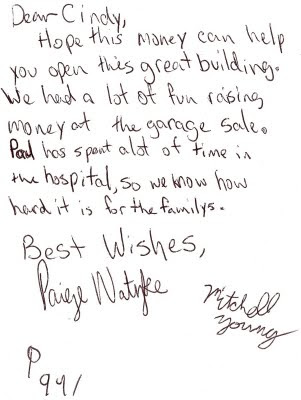 Dear Cindy,
Hope this money can help
you open this great building.
We had a lot of fun raising
money at the garage sale.
Paul has spent alot of time in
the hospital, so we know how
hard it is for the familys.
Best Wishes,
Paige
Mitchell
Young
P